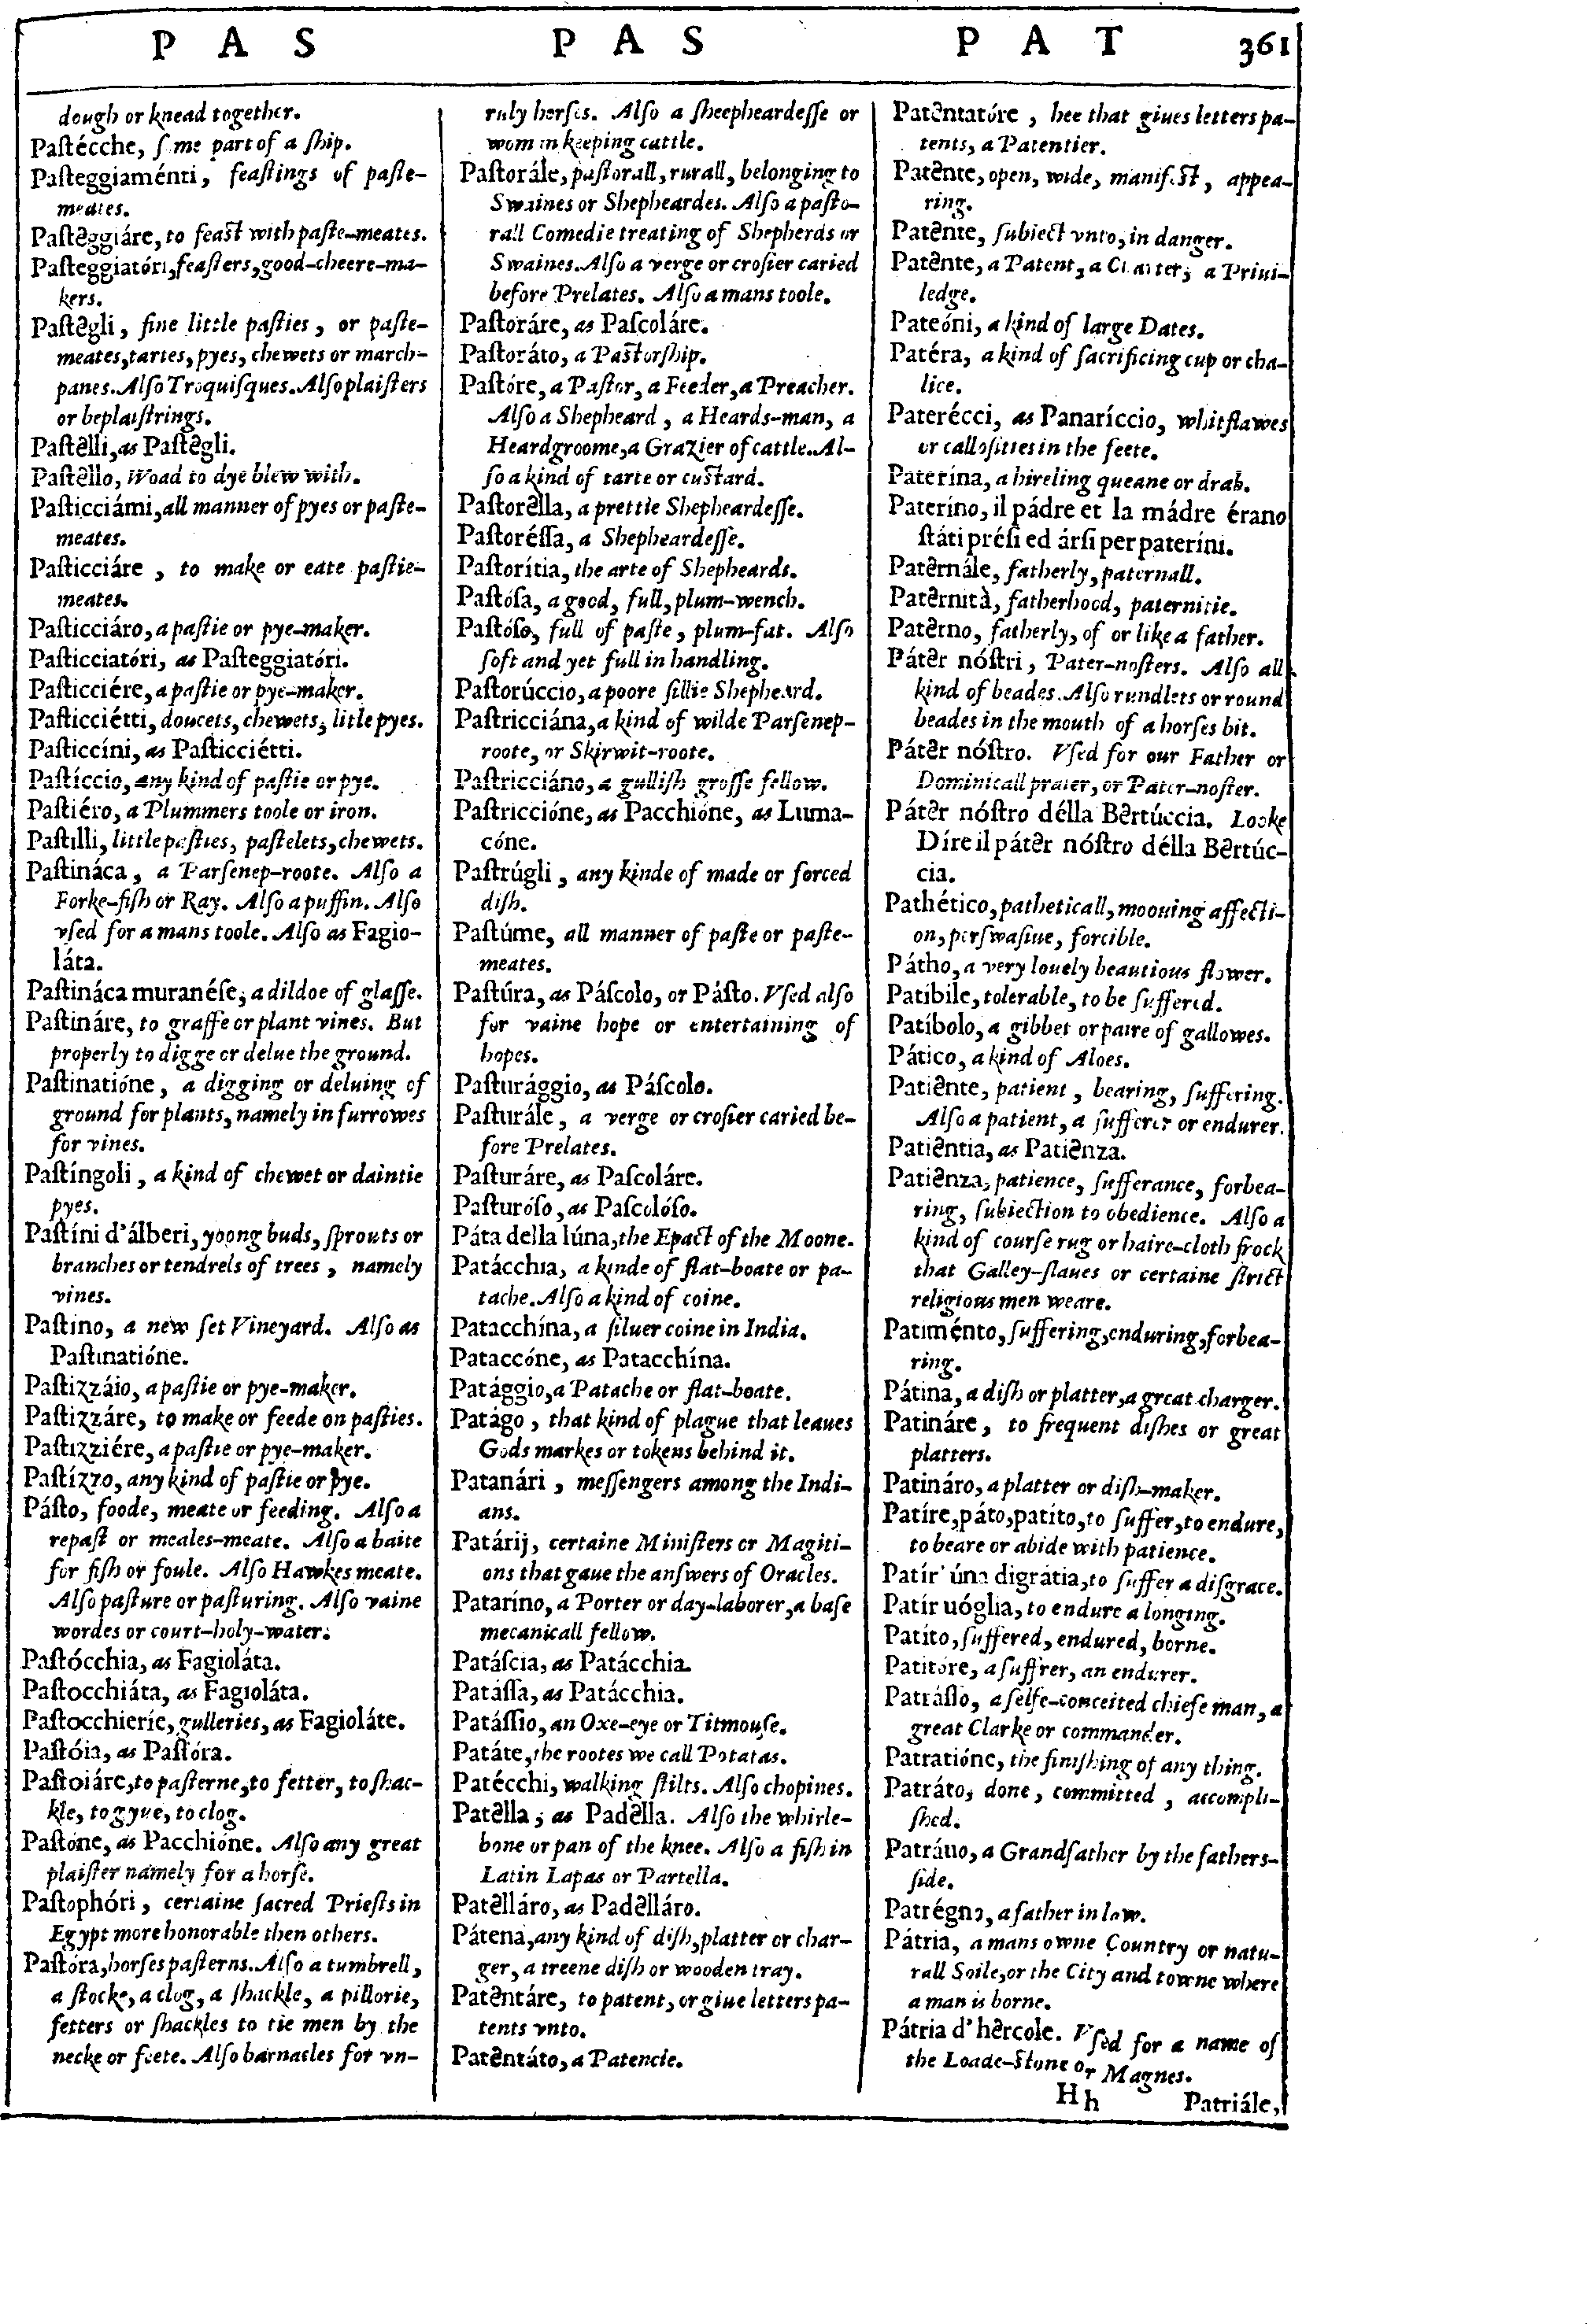 P A S
P A S
P A T
361
dough or knead together.
Paſtécche, ſ me part of a ſhip.
Paſteggiaménti, feaſtings of paſte-
meates.
Paſtęggiáre, to feaſt with paſte-meates.
Paſteggiatóri, feaſters, good-cheere-ma-
kers.
Paſtęgli, fine little paſties, or paſte-
meates, tartes, pyes, chewets or march-
panes. Alſo Troquiſques. Alſo plaiſters
or beplaiſtrings.
Paſtęlli, as Paſtęgli.
Paſtęllo, Woad to dye blew with.
Paſticciámi, all manner of pyes or paſte-
meates.
Paſticciáre, to make or eate paſtie-
meates.
Paſticciáro, a paſtie or pye-maker.
Paſticciatóri, as Paſteggiatóri.
Paſticciére, a paſtie or pye-maker.
Paſticciétti, doucets, chewets, litle pyes.
Paſticcíni, as Paſticciétti.
Paſtíccio, any kind of paſtie or pye.
Paſtiéro, a Plummers toole or iron.
Paſtilli, little paſties, paſtelets, chewets.
Paſtináca, a Parſenep-roote. Alſo a
Forke-fiſh or Ray. Alſo a puffin. Alſo
vſed for a mans toole. Alſo as Fagio-
láta.
Paſtináca muranéſe, a dildoe of glaſſe.
Paſtináre, to graffe or plant vines. But
properly to digge or delue the ground.
Paſtinatióne, a digging or deluing of
ground for plants, namely in furrowes
for vines.
Paſtíngoli, a kind of chewet or daintie
pyes.
Paſtíni d'álberi, yoong buds, ſprouts or
branches or tendrels of trees, namely
vines.
Paſtino, a new ſet Vineyard. Alſo as
Paſtinatióne.
Paſtizzáio, a paſtie or pye-maker.
Paſtizzáre, to make or feede on paſties.
Paſtizziére, a paſtie or pye-maker.
Paſtízzo, any kind of paſtie or pye.
Páſto, foode, meate or feeding. Alſo a
repaſt or meales-meate. Alſo a baite
for fiſh or foule. Alſo Hawkes meate.
Alſo paſture or paſturing. Alſo vaine
wordes or court-holy-water.
Paſtócchia, as Fagioláta.
Paſtocchiáta, as Fagioláta.
Paſtocchieríe, gulleries, as Fagioláte.
Paſtóia, as Paſtóra.
Paſtoiáre, to paſterne, to fetter, to ſhac-
kle, to gyue, to clog.
Paſtóne, as Pacchióne. Alſo any great
plaiſter namely for a horſe.
Paſtophóri, certaine ſacred Prieſts in
Egypt more honorable then others.
Paſtóra, horſes paſterns. Alſo a tumbrell,
a ſtocke, a clog, a ſhackle, a pillorie,
fetters or ſhackles to tie men by the
necke or feete. Alſo barnacles for vn-
ruly horſes. Alſo a ſheepheardeſſe or
wom in keeping cattle.
Paſtorále, paſtorall, rurall, belonging to
Swaines or Shepheardes. Alſo a paſto-
rall Comedie treating of Shepherds or
Swaines. Alſo a verge or croſier caried
before Prelates. Alſo a mans toole.
Paſtoráre, as Paſcoláre.
Paſtoráto, a Paſtorſhip.
Paſtóre, a Paſtor, a Feeder, a Preacher.
Alſo a Shepheard, a Heards-man, a
Heardgroome, a Grazier of cattle. Al-
ſo a kind of tarte or cuſtard.
Paſtoręlla, a prettie Shepheardeſſe.
Paſtoréſſa, a Shepheardeſſe.
Paſtorítia, the arte of Shepheards.
Paſtóſa, a good, full, plum-wench.
Paſtóſo, full of paſte, plum-fat. Alſo
ſoft and yet full in handling.
Paſtorúccio, a poore ſillie Shepheard.
Paſtricciána, a kind of wilde Parſenep-
roote, or Skirwit-roote.
Paſtricciáno, a gulliſh groſſe fellow.
Paſtriccióne, as Pacchióne, as Luma-
cóne.
Paſtrúgli, any kinde of made or forced
diſh.
Paſtúme, all manner of paſte or paſte-
meates.
Paſtúra, as Páſcolo, or Páſto. Vſed alſo
for vaine hope or entertaining of
hopes.
Paſturággio, as Páſcolo.
Paſturále, a verge or croſier caried be-
fore Prelates.
Paſturáre, as Paſcoláre.
Paſturóſo, as Paſcolóſo.
Páta della lúna, the Epact of the Moone.
Patácchia, a kinde of flat-boate or pa-
tache. Alſo a kind of coine.
Patacchína, a ſiluer coine in India.
Pataccóne, as Patacchína.
Patággio, a Patache or flat-boate.
Patágo, that kind of plague that leaues
Gods markes or tokens behind it.
Patanári, meſſengers among the Indi-
ans.
Patárij, certaine Miniſters or Magiti-
ons that gaue the anſwers of Oracles.
Pataríno, a Porter or day-laborer, a baſe
mecanicall fellow.
Patáſcia, as Patácchia.
Patáſſa, as Patácchia.
Patáſſio, an Oxe-eye or Titmouſe.
Patáte, the rootes we call Potatas.
Patécchi, walking ſtilts. Alſo chopines.
Patęlla, as Padęlla. Alſo the whirle-
bone or pan of the knee. Alſo a fiſh in
Latin Lapas or Partella.
Patęlláro, as Padęlláro.
Pátena, any kind of diſh, platter or char-
ger, a treene diſh or wooden tray.
Patęntáre, to patent, or giue letters pa-
tents vnto.
Patęntáto, a Patencie.
Patęntatóre, hee that giues letters pa-
tents, a Patentier.
Patęnte, open, wide, manifeſt, appea-
ring.
Patęnte, ſubiect vnto, in danger.
Patęnte, a Patent, a Charter, a Priui-
ledge.
Pateóni, a kind of large Dates.
Patéra, a kind of ſacrificing cup or cha-
lice.
Paterécci, as Panaríccio, whitflawes
or calloſities in the feete.
Paterína, a hireling queane or drab.
Pateríno, il pádre et la mádre érano
ſtáti préſi ed árſi per pateríni.
Patęrnále, fatherly, paternall.
Patęrnità, fatherhood, paternitie.
Patęrno, fatherly, of or like a father.
Pátęr nóſtri, Pater-noſters. Alſo all
kind of beades. Alſo rundlets or round
beades in the mouth of a horſes bit.
Pátęr nóſtro. Vſed for our Father or
Dominicall praier, or Pater-noſter.
Pátęr nóſtro délla Bęrtúccia. Looke
Díre il pátęr nóſtro délla Bęrtúc-
cia.
Pathético, patheticall, moouing affecti-
on, perſwaſiue, forcible.
Pátho, a very louely beautious flower.
Patíbile, tolerable, to be ſuffered.
Patíbolo, a gibbet or paire of gallowes.
Pático, a kind of Aloes.
Patięnte, patient, bearing, ſuffering.
Alſo a patient, a ſufferer or endurer.
Patięntia, as Patięnza.
Patięnza, patience, ſufferance, forbea-
ring, ſubiection to obedience. Alſo a
kind of courſe rug or haire-cloth frock
that Galley-ſlaues or certaine ſtrict
religious men weare.
Patiménto, ſuffering, enduring, forbea-
ring.
Pátina, a diſh or platter, a great charger.
Patináre, to frequent diſhes or great
platters.
Patináro, a platter or diſh-maker.
Patíre, páto, patíto, to ſuffer, to endure,
to beare or abide with patience.
Patír' úna digrátia, to ſuffer a diſgrace.
Patír uóglia, to endure a longing.
Patíto, ſuffered, endured, borne.
Patitóre, a ſuffrer, an endurer.
Patráſſo, a ſelfe-conceited chiefe man, a
great Clarke or commander.
Patratióne, the finiſhing of any thing.
Patráto, done, committed, accompli-
ſhed.
Patráuo, a Grandfather by the fathers-
ſide.
Patrégno, a father in law.
Pátria, a mans owne Country or natu-
rall Soile, or the City and towne where
a man is borne.
Pátria d'hęrcole. Vſed for a name of
the Loade-ſtone or Magnes.
Hh
Patriále,